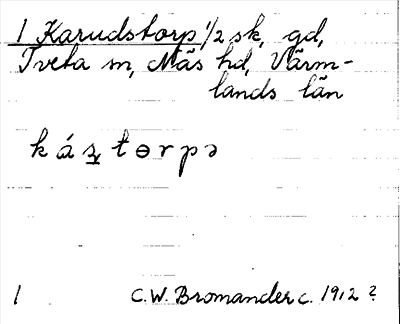 1 Karudstorp 1/2 sk, gd,
Tveta sn, Näs hd, Värm-
lands län
k á ʂ t ɵ r p ə
1 C.W. Bromander c. 1912 ?